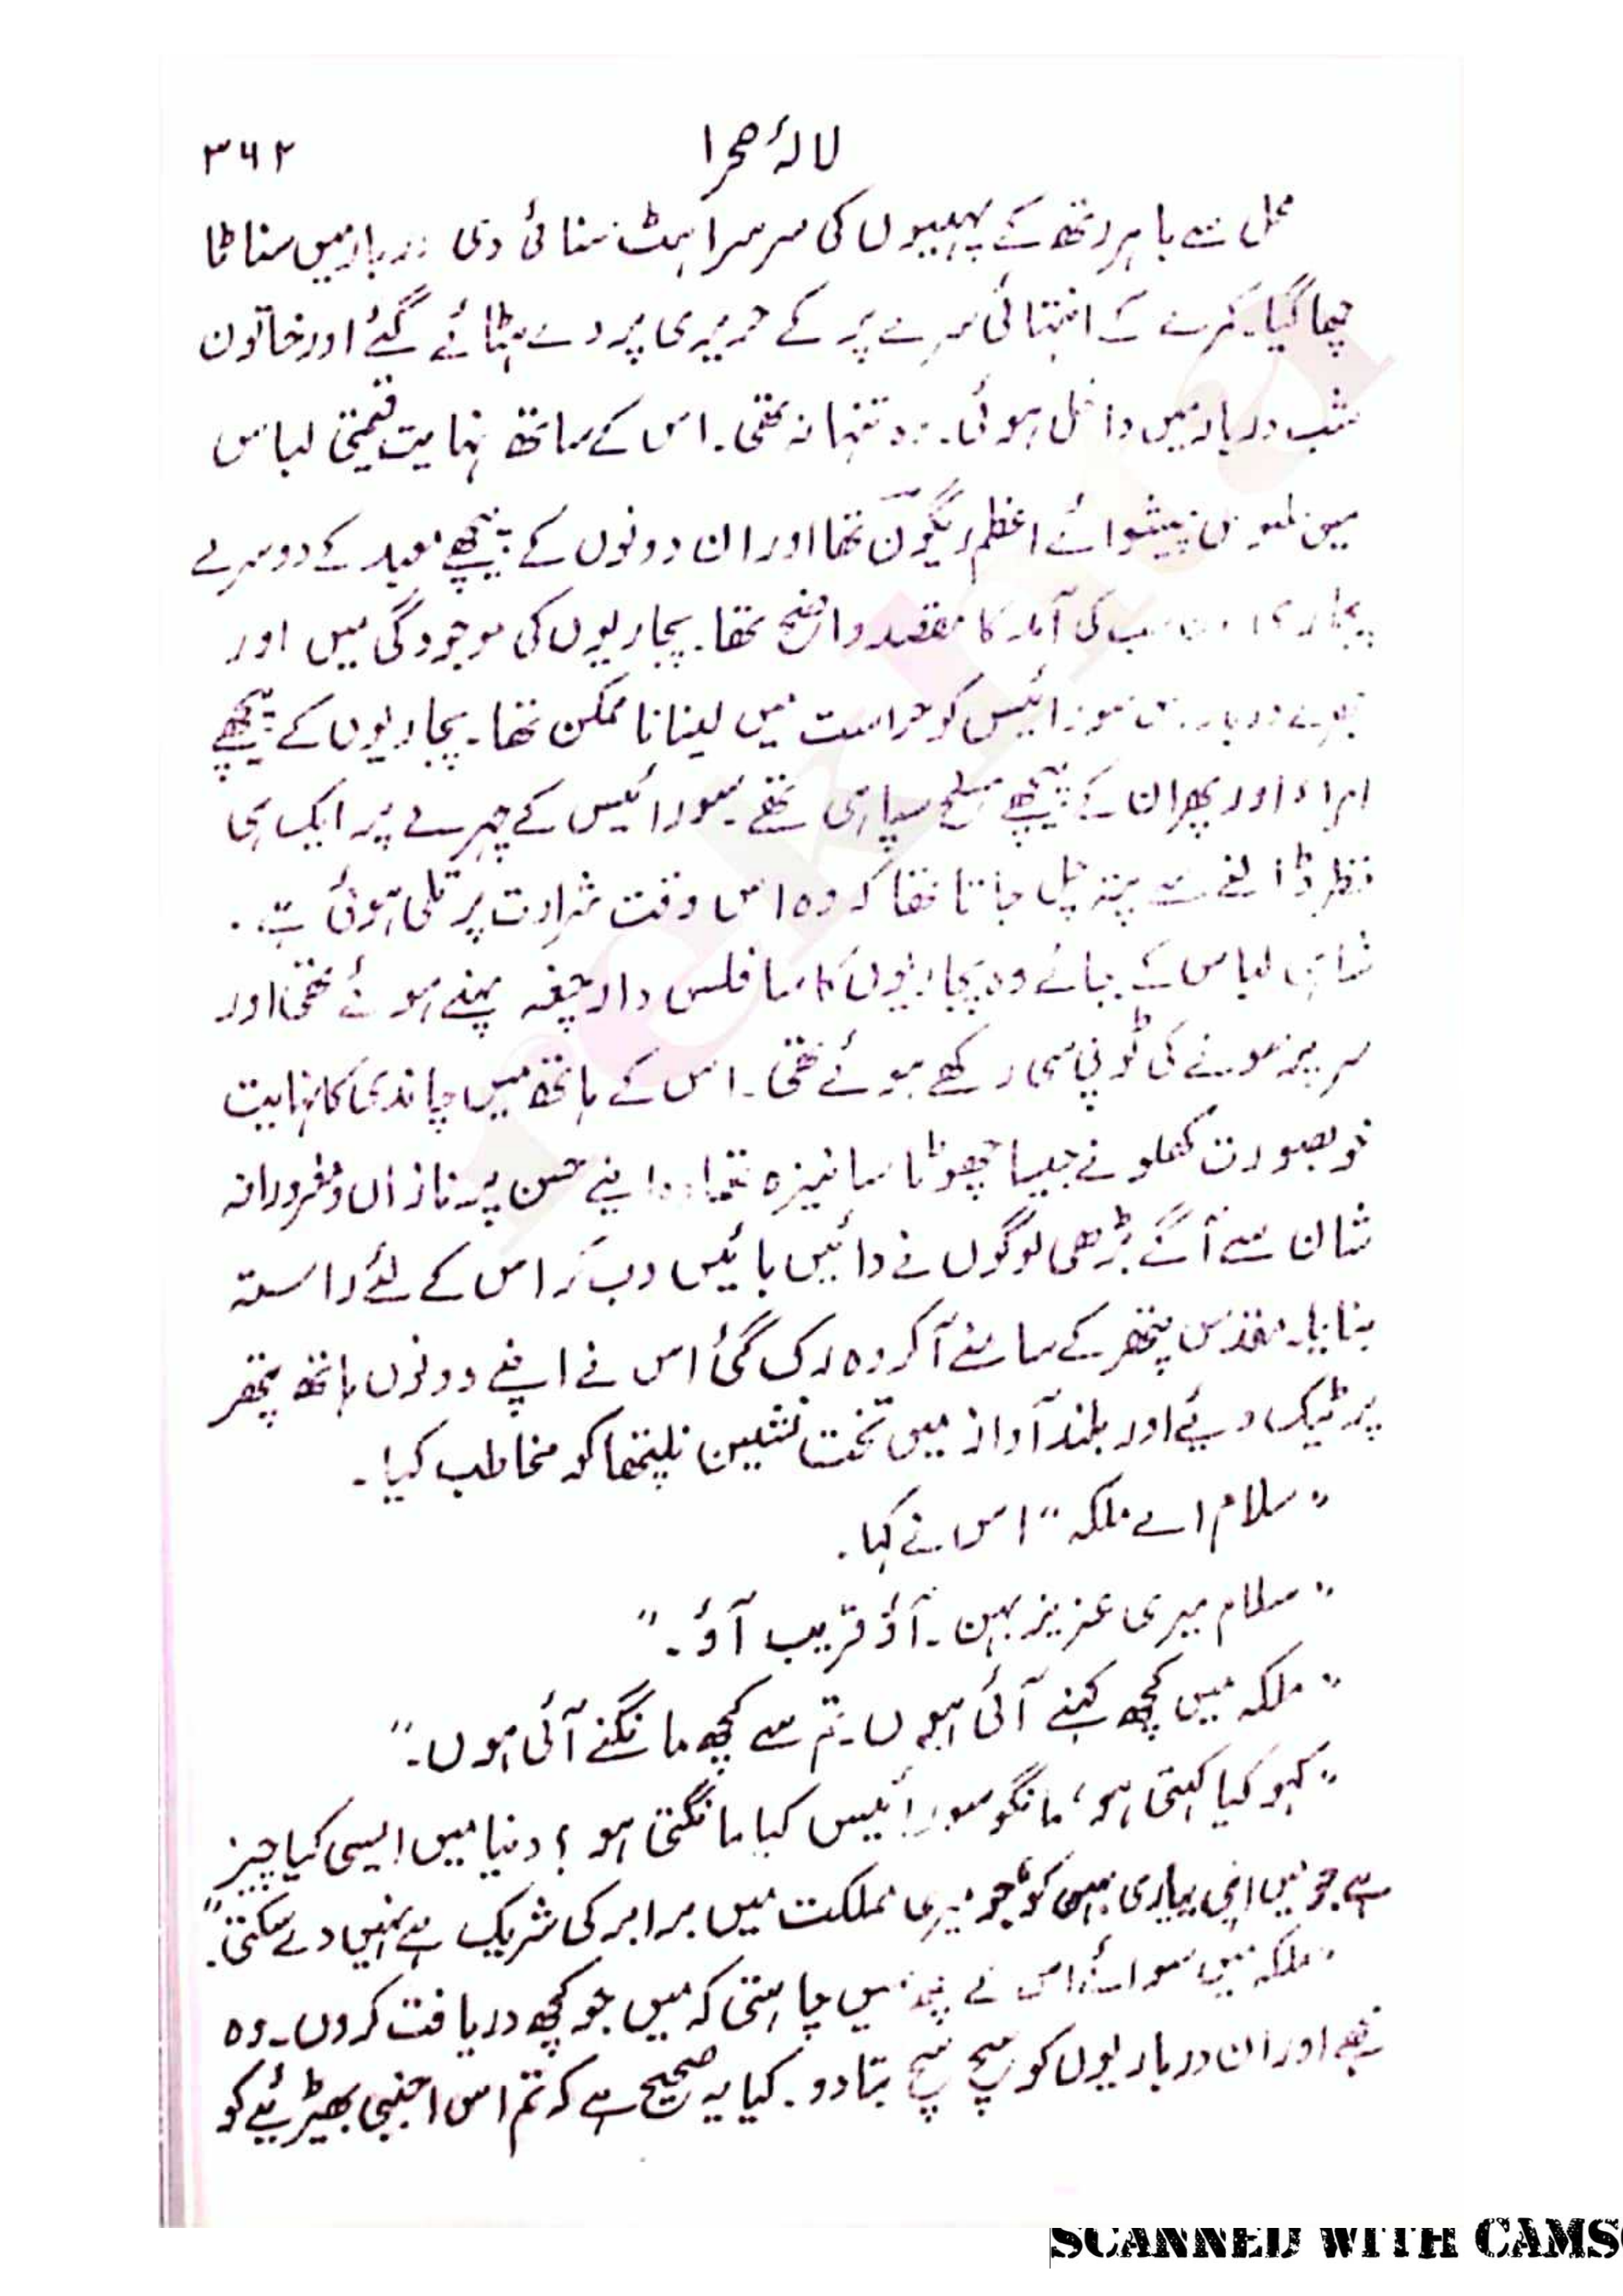 لالۂ صحرا
۳۶۲
محل سے باہر رتھ کے پہیوں کی سرسراہٹ سنائی دی دربار میں سناٹا
چھا گیا۔ کمرے کے انتہائی سرے پر کے حریری پردے ہٹائے گئے اور خاتون
شب دربار میں داخل ہوئی۔ وہ تنہا نہ تھی۔ اس کے ساتھ نہایت قیمتی لباس
میں ملبوس پیشوائے اعظم ریگون تھا اور ان دونوں کے پیچھے معبد کے دوسرے
پجاری سب کی آمد کا مقصد واضح تھا۔ پجاریوں کی موجودگی میں اور
بھرے دربار میں سورائیس کو حراست میں لینا ناممکن تھا۔ پجاریوں کے پیچھے
امراء اور پھر ان کے پیچھے مسلح سپاہی تھے۔ سورائیس کے چہرے پر ایک ہی
نظر ڈالنے سے پتہ چل جاتا تھا کہ وہ اس وقت شرارت پر تلی ہوئی ہے۔
شاہی لباس کے بجائے وہ پجاریوں کا سا فلس دار چغہ پہنے ہوئے تھی اور
سر پر سونے کی ٹوپی سی رکھے ہوئے تھی۔ اس کے ہاتھ میں چاندی کا نہایت
خوبصورت کھلونے جیسا چھوٹا سا نیزہ تھا۔ وہ اپنے حسن پر نازاں و مغرورانہ
شان سے آگے بڑھی لوگوں نے دائیں بائیں دب کر اس کے لئے راستہ
بنایا۔ مقدس پتھر کے سامنے آکر وہ رک گئی اس نے اپنے دونوں ہاتھ پتھر
پر ٹیک دیئے اور بلند آواز میں تخت نشین نلپتھا کو مخاطب کیا۔
"سلام اے ملکہ" اس نے کہا۔
"سلام میری عزیز بہن۔ آؤ قریب آؤ۔"
"ملکہ میں کچھ کہنے آئی ہوں۔ تم سے کچھ مانگنے آئی ہوں۔"
"کہو کیا کہتی ہو، مانگو سورائیس کیا مانگتی ہو؟ دنیا میں ایسی کیا چیز
ہے جو میں اپنی پیاری بہن کو جو میری مملکت میں برابر کی شریک ہے نہیں دے سکتی۔"
"ملکہ میں سوائے اس کے کچھ نہیں چاہتی کہ میں جو کچھ دریافت کروں۔ وہ
مجھے اور ان درباریوں کو سچ سچ بتا دو۔ کیا یہ صحیح ہے کہ تم اس اجنبی بھیڑیئے کو
SCANNED WITH CAMS